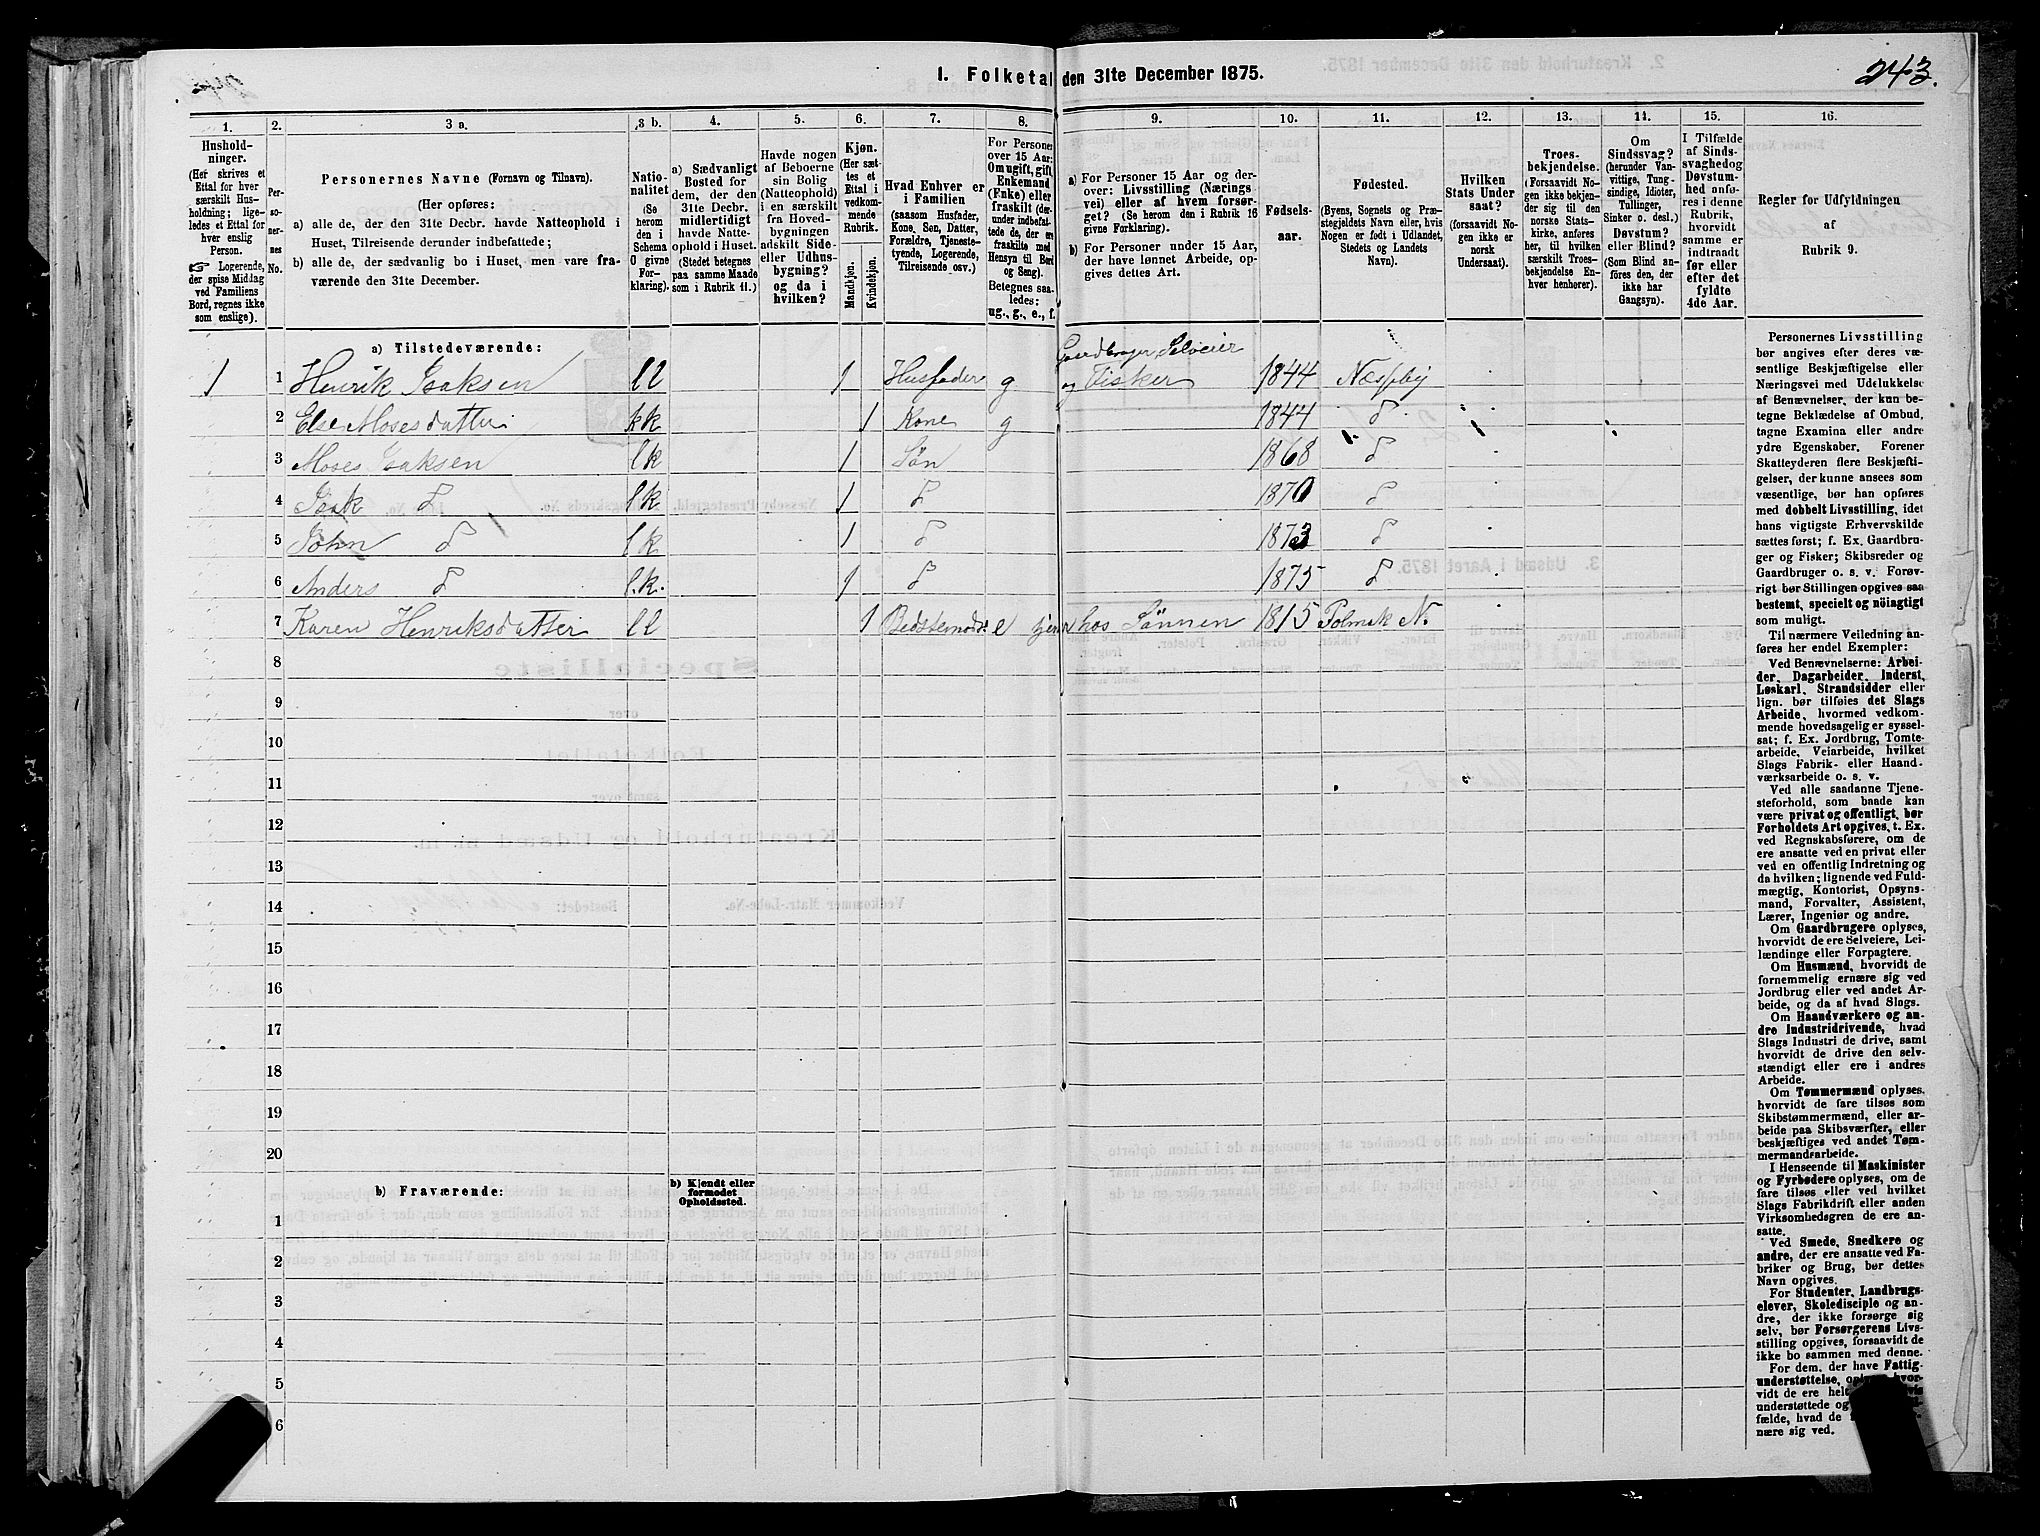 I. Folketal den 31te December 1875.
243.
1.
Hushold-
ninger.
(Her skrives et
Ettal for hver
særskilt Hus-
holdning; lige-
ledes et Ettal for
hver enslig
Person.
☞ Logerende,
der spise Middag
ved Familiens
Bord, regnes ikke
som enslige).
2.
Per-
so-
ner-
nes
No.
3 a.
Personernes Navne (Fornavn og Tilnavn).
(Her opføres:
a) alle de, der den 31te Decbr. havde Natteophold i
Huset, Tilreisende derunder indbefattede;
b) alle de, der sædvanlig bo i Huset, men vare fra-
værende den 31te December.
3 b.
Natio-
nalitet
(Se
herom
den i
Schema
O givne
For-
klaring).
4.
a) Sædvanligt
Bosted for
dem, der den
31te Decbr.
midlertidigt
havde Natte-
ophold i Huset.
(Stedet betegnes
paa samme Maade
som i Rubrik 11.)
5.
Havde nogen
af Beboerne
sin Bolig
(Natteophold)
i en særskilt
fra Hoved-
bygningen
adskilt Side-
eller Udhus-
bygning?
og da i
hvilken?
6.
Kjøn.
(Her sæt-
tes et
Ettal i
vedkom-
mende
Rubrik.
Mandkjøn.
Kvindekjøn.
7.
Hvad Enhver er
i Familien
(saasom Husfader,
Kone, Søn, Datter,
Forældre, Tjeneste-
tyende, Logerende,
Tilreisende osv.)
8.
For Personer
over 15 Aar:
Om ugift, gift,
Enkemand
(Enke) eller
fraskilt (der-
under indbefat-
tede de, der ere
fraskilte med
Hensyn til Bord
og Seng).
Betegnes saa-
ledes:
ug., g., e., f.
9.
a) For Personer 15 Aar og der-
over: Livsstilling (Nærings-
vei) eller af hvem forsør-
get? (Se herom den i Rubrik 16
givne Forklaring).
b) For Personer under 15 Aar,
der have lønnet Arbeide, op-
gives dettes Art.
10.
Fødsels-
aar.
11.
Fødested.
(Byens, Sognets og Præ-
stegjeldets Navn eller, hvis
Nogen er født i Udlandet,
Stedets og Landets
Navn).
12.
Hvilken
Stats Under
saat?
(forsaavidt No-
gen ikke er
norsk
Undersaat).
13.
Troes-
bekjendelse.
(Forsaavidt No-
gen ikke bekjen-
der sig til den
norske Stats-
kirke, anføres
her, til hvilken
særskilt Troes-
bekjendelse En-
hver henhører).
14.
Om
Sindssvag?
(herunder Van-
vittige, Tung-
sindige, Idioter,
Tullinger,
Sinker o. desl.)
Døvstum?
eller Blind?
(Som Blind an-
føres den, der
ikke har
Gangsyn).
15.
I Tilfælde
af Sinds-
svaghed og
Døvstum-
hed anfø-
res i denne
Rubrik,
hvorvidt
samme er
indtraadt
før eller
efter det
fyldte
4de Aar.
16.
Regler for Udfyldningen
af
Rubrik 9.
a) Tilstedeværende:
Gaardbruger, Selveier
1 1 Henrik Isaksen ll 1 Husfader g og Fisker 1844 Næsseby
2 Else Mosesdatter kk 1 Kone g 1844 d
3 Moses Isaksen lk 1 Søn 1868 d
4 Isak d lk 1 d 1870 d
5 John d lk 1 d 1873 d
6 Anders d l.k. 1 d 1875 d
7 Karen Henriksdatter ll 1 Bedstemoder e hos Sønnen 1815 Polmak N.
8
9
10
11
12
13
14
15
16
17
18
19
20
b) Fraværende:
b) Kjendt eller
formodet
Opholdssted.
1
2
3
4
5
6
Personernes Livsstilling
bør angives efter deres væ-
sentlige Beskjæftigelse eller
Næringsvei med Udelukkelse
af Benævnelser, der kun be-
tegne Beklædelse af Ombud,
tagne Examina eller andre
ydre Egenskaber. Forener
Skatteyderen flere Beskjæfti-
gelser, der kunne ansees som
væsentlige, bør han opføres
med dobbelt Livsstilling, idet
hans vigtigste Erhvervskilde
sættes først; f. Ex. Gaardbru-
ger og Fisker; Skibsreder og
Gaardbruger o. s. v. Forøv-
rigt bør Stillingen opgives saa
bestemt, specielt og nöiagtigt
som muligt.
Til nærmere Veiledning an-
føres her endel Exempler:
Ved Benævnelserne: Arbei-
der, Dagarbeider, Inderst,
Løskarl, Strandsidder eller
lign. bør tilføies det Slags
Arbeide, hvormed vedkom-
mende hovedsagelig er syssel-
sat; f. Ex. Jordbrug, Tomte-
arbeide, Veiarbeide, hvilket
Slags Fabrik- eller Haand-
værksarbeide o. s. v.
Ved alle saadanne Tjene-
steforhold, som baade kan
være privat og offentligt, bør
Forholdets Art opgives, t. Ex.
ved Regnskabsførere, om de
ere ansatte ved en privat eller
ved en offentlig Indretning og
da hvilken; lignende ved Fuld-
mægtig, Kontorist, Opsyns-
mand, Forvalter, Assistent,
Lærer, Ingeniør og andre.
Om Gaardbrugere oplyses,
hvorvidt de ere Selveiere, Lei-
lændinge eller Forpagtere.
Om Husmænd, hvorvidt de
fornemmelig ernære sig ved
Jordbrug eller ved andet Ar-
beide, og da af hvad Slags.
Om Haandværkere og an-
dre Industridrivende, hvad
Slags Industri de drive, samt
hvorvidt de drive den selv-
stændigt eller ere i andres
Arbeide.
Om Tømmermænd oplyses,
hvorvidt de fare tilsøs som
Skibstømmermænd, eller ar-
beide paa Skibsværfter, eller
beskjæftiges ved andet Tøm-
mermandsarbeide.
I Henseende til Maskinister
og Fyrbødere oplyses, om de
fare tilsøs eller ved hvilket
Slags Fabrikdrift eller anden
Virksomhedsgren de ere an-
satte.
Ved Smede, Snedkere og
andre, der ere ansatte ved Fa-
briker og Brug, bør dettes
Navn opgives.
For Studenter, Landbrugs-
elever, Skoledisciple og an-
dre, der ikke forsørge sig
selv, bør Forsørgerens Livs-
stilling opgives, forsaavidt de
ikke bo sammen med denne.
For dem, der have Fattig-
understøttelse, hvor-
vidt de ere
understøttede og
fælde, hvad de
nære sig ved.